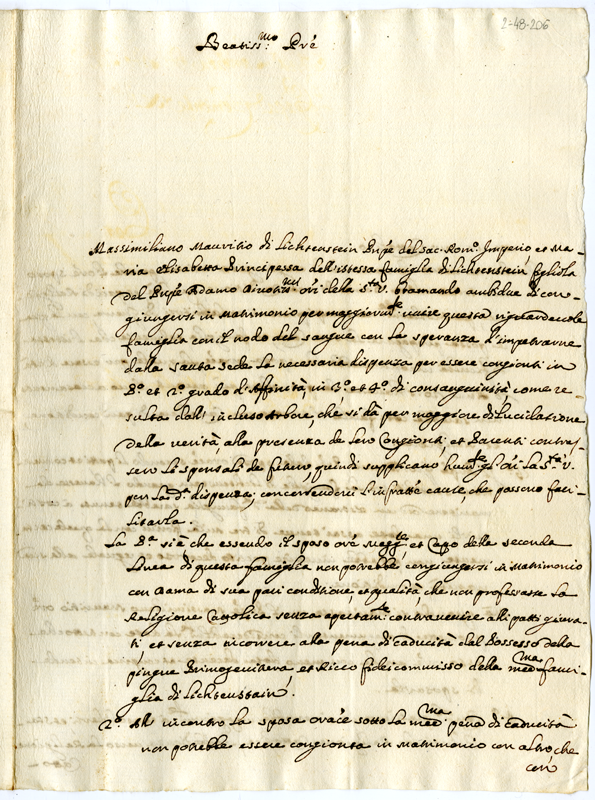 2-48-206
Beatiss:mo Prē
Massimiliano Mauritio di Lichtenstein Prñpe del Sac. Rom.º Imperio et Ma-
ria Elisabetta Principessa dell'istessa famiglia di Lichtenstein figliola
del Prñpe Adamo ori della S.ta V. bramando ambidue di con-
giungersi in Matrimonio per maggiorm.te unire questa riguardevole
famiglia con il nodo del sangue con la speranza d'impetrarne
dalla santa Sede la necessaria dispenza per essere congionti in
P.º et 2.º grado d'Affinità, in 3.º et 4.º di consanguinità, come re-
sulta dall' incluso Arbore, che si dà per maggiore dilucidatione
della verità, alla presenza de loro Congionti, et Parenti contras-
sero li sponsali de futuro, quindi supplicano hum.te gl'ori la S.tà V.
per la d.ª dispenza, concorrendovi l'infratte cause, che possono faci-
litarla.
La P.ª si è che essendo il sposo ore Magg.re, et Capo della seconda
Linea di questa famiglia non potrebbe congiongersi in Matrimonio
con Dama di sua pari conditione, et qualità, che non professasse la
Religione Cattolica senza apertam.te contravenire alli patti giura-
ti, et senza incorrere alla pena di caducità dal Possesso della
pingue Primogenitura, et Ricco fideicommisso della med.ma fami-
glia di Lichtenstain.
2.º All' incontro la sposa orãce sotto la med.ma pena di caducità
non potrebbe essere congionta in Matrimonio con altro che
con